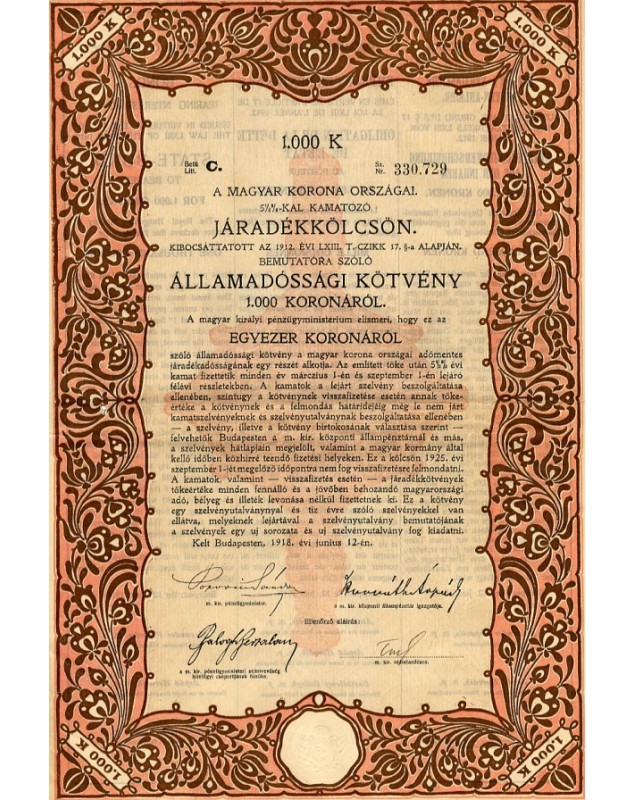 1.000 K
1.000 K
1.000 K
Betű
Litt. C.
Sz.
Nr. 330.729
A MAGYAR KORONA ORSZÁGAI.
5½%-KAL KAMATOZÓ
JÁRADÉKKÖLCSÖN.
KIBOCSÁTTATOTT AZ 1912. ÉVI LXIII. T.-CZIKK 17. §-a ALAPJÁN.
BEMUTATÓRA SZÓLÓ
ÁLLAMADÓSSÁGI KÖTVÉNY
1.000 KORONÁRÓL.
A magyar királyi pénzügyministerium elismeri, hogy ez az
EGYEZER KORONÁRÓL
szóló államadóssági kötvény a magyar korona országai adómentes
járadékadósságának egy részét alkotja. Az említett tőke után 5½% évi
kamat fizettetik minden év márczius 1-én és szeptember 1-én lejáró
félévi részletekben. A kamatok a lejárt szelvény beszolgáltatása
ellenében, szintugy a kötvénynek visszafizetése esetén annak tőke-
értéke a kötvénynek és a felmondás határidejéig még le nem járt
kamatszelvényeknek és szelvényutalványnak beszolgáltatása ellenében
— a szelvény, illetve a kötvény birtokosának választása szerint —
felvehetők Budapesten a m. kir. központi állampénztárnál és más,
a szelvények hátlapján megjelölt, valamint a magyar kormány által
kellő időben közhírré teendő fizetési helyeken. Ez a kölcsön 1925. évi
szeptember 1-jét megelőző időpontra nem fog visszafizetésre felmondatni.
A kamatok, valamint — visszafizetés esetén — a járadékkötvények
tőkeértéke minden fennálló és a jövőben behozandó magyarországi
adó, bélyeg és illeték levonása nélkül fizettetnek ki. Ez a kötvény
egy szelvényutalványnyal és tíz évre szóló szelvényekkel van
ellátva, melyeknek lejártával a szelvényutalvány bemutatójának
a szelvények egy uj sorozata és uj szelvényutalvány fog kiadatni.
Kelt Budapesten, 1918. évi junius 12-én.
m. kir. pénzügyminister.
a m. kir. központi állampénztár igazgatója.
Ellenőrző aláírás:
a m. kir. pénzügyministeri számvevőség
hitelügyi csoportjának főnöke.
1.000 K
1.000 K